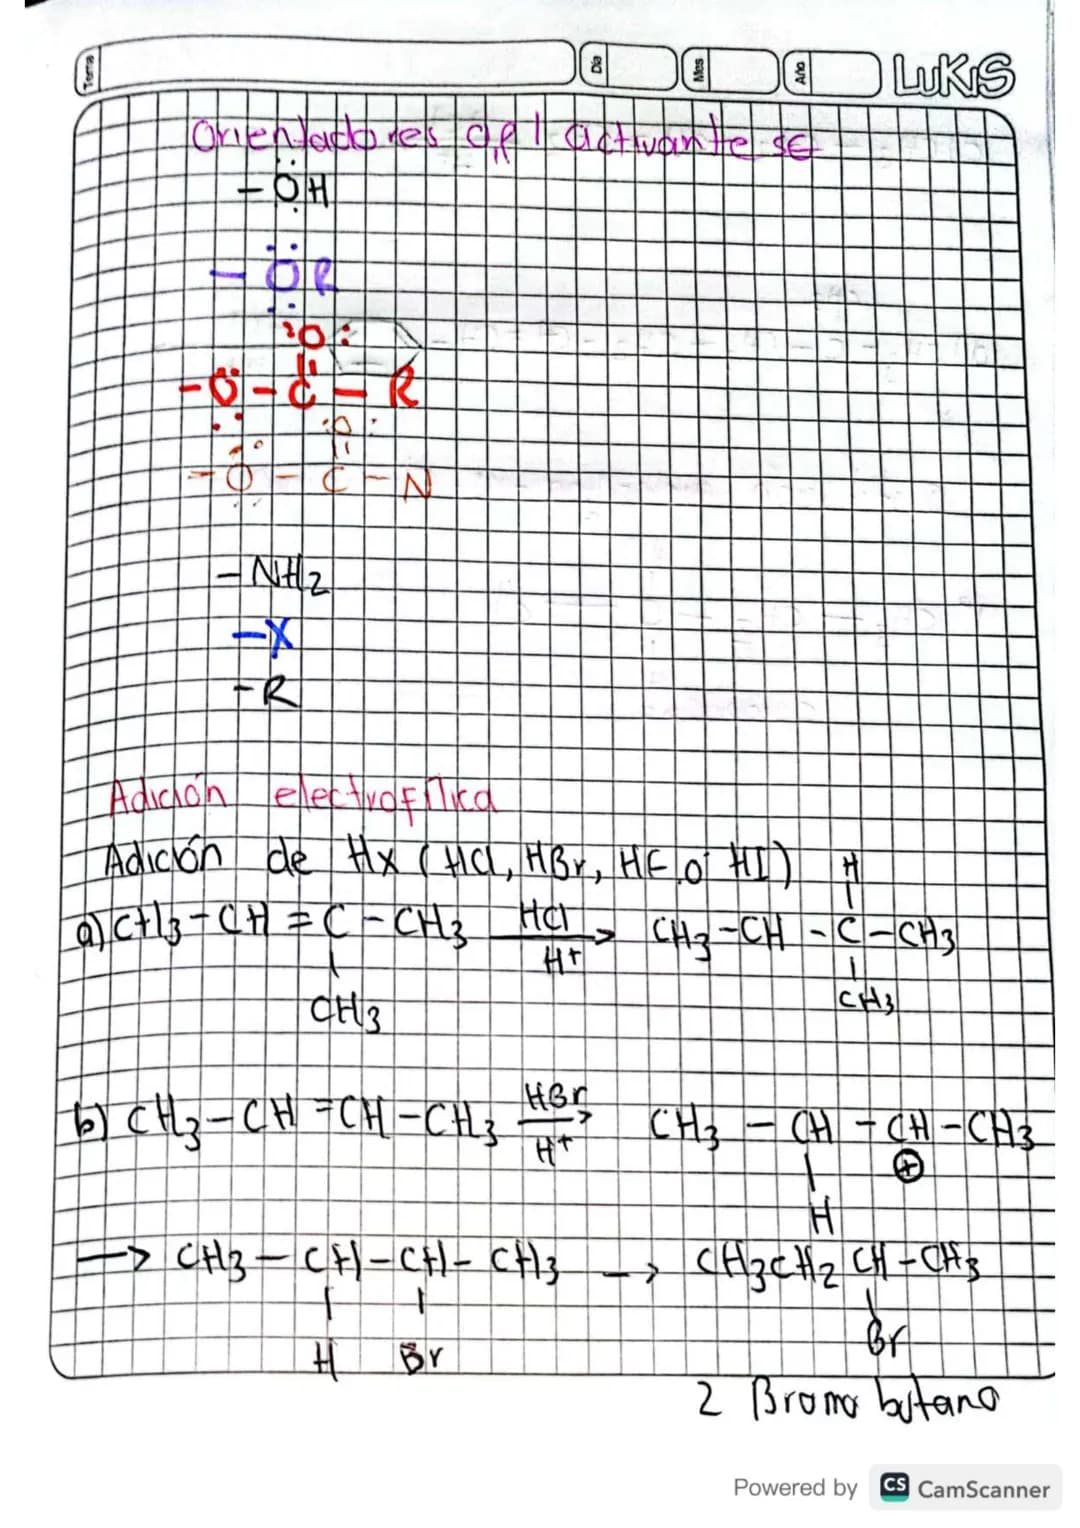 Tema Dia Mes Año LUKIS
Orientadores o,p | activante SE
-ÖH
-ÖR
:O:
-O-C-R
:O:
-O-C-N
-NH2
-X
-R
Adición electrofílica
Adición de HX (HCl, HBr, HF, ó HI)
H
a) CH3-CH=C-CH3 HCl → CH3-CH-C-CH3
H+
CH3 CH3
HBr
b) CH3-CH=CH-CH3 → CH3-CH-CH-CH3
H+ ⊕
H
→ CH3-CH-CH-CH3 → CH3CH2CH-CH3
H Br Br
2 Bromo butano
Powered by CS CamScanner